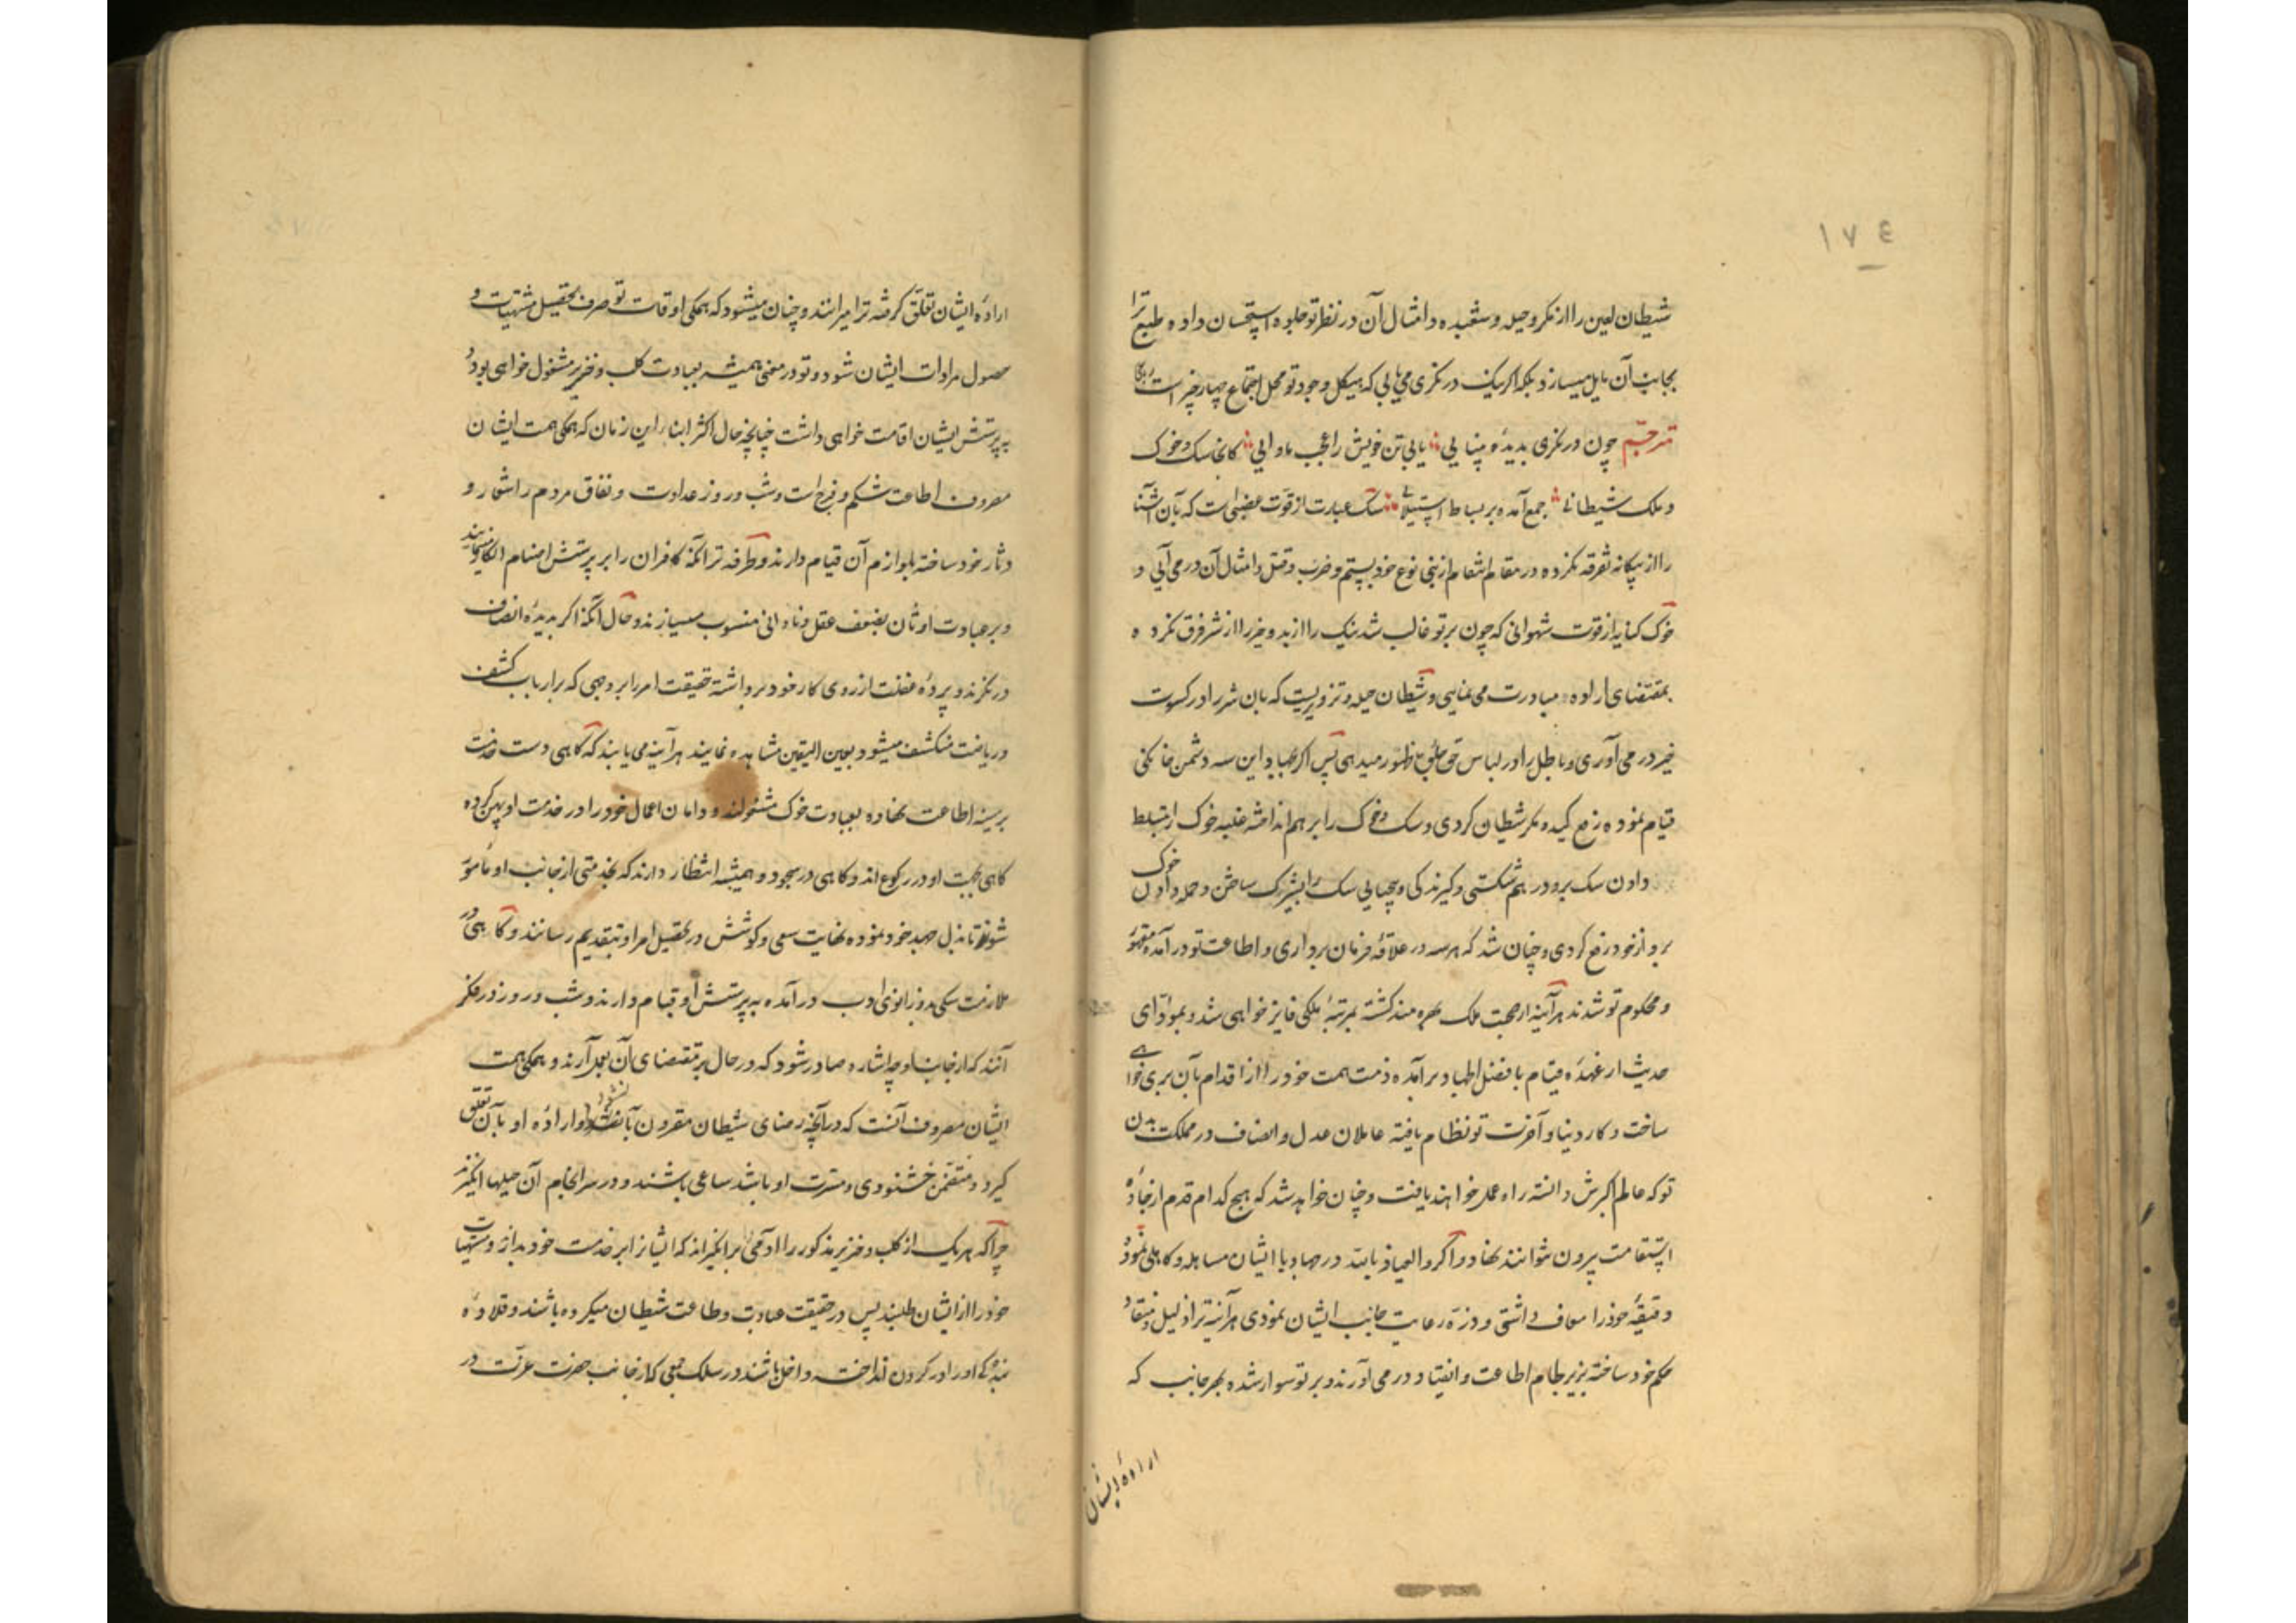 ١٧٤
شیطان لعین را از مکر و حیله و شعبده و امثال آن در نظر تو جلوه استحسان داده طبع ترا
بجانب آن مایل میسازد بلکه اگر نیک در نگری می یابی که هیکل وجود تو محل اجتماع چهار چیز است
مترجم چون در نگری بدیده بینایی یابی تن خویش را عجب ماوایی کانجا سک و خوک
و ملک شیطانی جمع آمده بر بساط استیلا سک عبارت از قوت غضبی است که بآن آشنا
را از بیکانه تفرقه نکرده در مقام انتقام از بنی نوع خود بستم و ضرب و قتل و امثال آن در می آیی و
خوک کنایه از قوت شهوانی که چون بر تو غالب شد نیک را از بد و خیر را از شر فرق نکرده
بمقتضای اراده مبادرت می نمایی و شیطان حیله و تزویریست که بآن شر را در کسوت
خیر در می آوری و باطل را در لباس حق بظهور میدهی پس اگر بجهاد این سه دشمن خانکی
قیام نموده رفع کید و مکر شیطان کردی و سک و خوک را بر هم انداخته غلبه خوک را بتسلط
دادن سک برو در هم شکستی و گیرندکی و بیحیایی سک را بشریک ساختن و حمله دادن خوک
برو از خود رفع کردی و چنان شد که هر سه در علاقه فرمان برداری و اطاعت تو در آمده مقهور
و محکوم تو شدند هر آینه از صحبت ملک بهره مند کشته بمرتبه ملکی فایز خواهی شد و بمؤدای
حدیث از عهده قیام بافضل الجهاد بر آمده ذمت همت خود را از اقدام بآن بری خواهی
ساخت و کار دنیا و آخرت تو نظام یافته عاملان عدل و انصاف در مملکت بدن
تو که عالم اکبرش دانسته راه عمل خواهند یافت و چنان خواهد شد که هیچ کدام قدم از جاده
استقامت بیرون نتوانند نهاد و اگر والعیاذ بالله در جهاد با ایشان مساهله و کاهلی نموده
دقیقه خود را معاف داشتی و ذره رعایت جانب ایشان نمودی هر آینه ترا ذلیل و منقاد
حکم خود ساخته بزیر لجام اطاعت و انقیاد در می آورند و بر تو سوار شده بهر جانب که
اراده ایشان
اراده ایشان تعلق گرفته ترا میرانند و چنان میشود که همکی اوقات تو صرف تحصیل مشتهیات و
حصول مرادات ایشان شود و تو در معنی همیشه بعبادت کلب و خنزیر مشغول خواهی بود و
به پرستش ایشان اقامت خواهی داشت چنانچه حال اکثر ابناء این زمان که همکی همت ایشان
مصروف اطاعت شکم و فرج است و شب و روز عداوت و نفاق مردم را شعار و
دثار خود ساخته بلوازم آن قیام دارند و طرفه تر آنکه کافران را بر پرستش اصنام انکار مینمایند
و بر عبادت اوثان بضعف عقل و نادانی منسوب میسازند و حال آنکه اگر بدیده انصاف
در نگرند و پرده غفلت از روی کار خود برداشته حقیقت امر را بر وجهی که بر ارباب کشف
دریافت منکشف میشود بعین الیقین مشاهده نمایند هر آینه می یابند که گاهی دست خدمت
بر سینه اطاعت نهاده بعبادت خوک مشغولند و دامان اعمال خود را در خدمت او پهن کرده
گاهی بجهت او در رکوع اند و گاهی در سجود و همیشه انتظار دارند که بخدمتی از جانب او مامور
شوند تا بذل جهد خود نموده نهایت سعی و کوشش در تحصیل امر او بتقدیم رسانند و گاهی در
ملازمت سکی بدو زانوی ادب در آمده به پرستش او قیام دارند و شب و روز در فکر
آنند که از جانب او چه اشاره صادر شود که در حال بر مقتضای آن بعمل آرند و همکی همت
ایشان مصروف آنست که در آنچه رضای شیطان مقرون بآن شود و اراده او بآن تعلق
گیرد و متضمن خشنودی و مسرت او باشد ساعی باشند و در سرانجام آن حیلها انگیزند
چرا که هر یک از کلب و خنزیر مذکور را او می بر انگیزاند که ایشانرا بر خدمت خود بدارند و مشتهیات
خود را از ایشان طلبند پس در حقیقت عبادت و طاعت شیطان میکرده باشند و قلاده
بندکی او را در گردن انداخته داخل باشند در سلک جمعی که از جانب حضرت عزت در